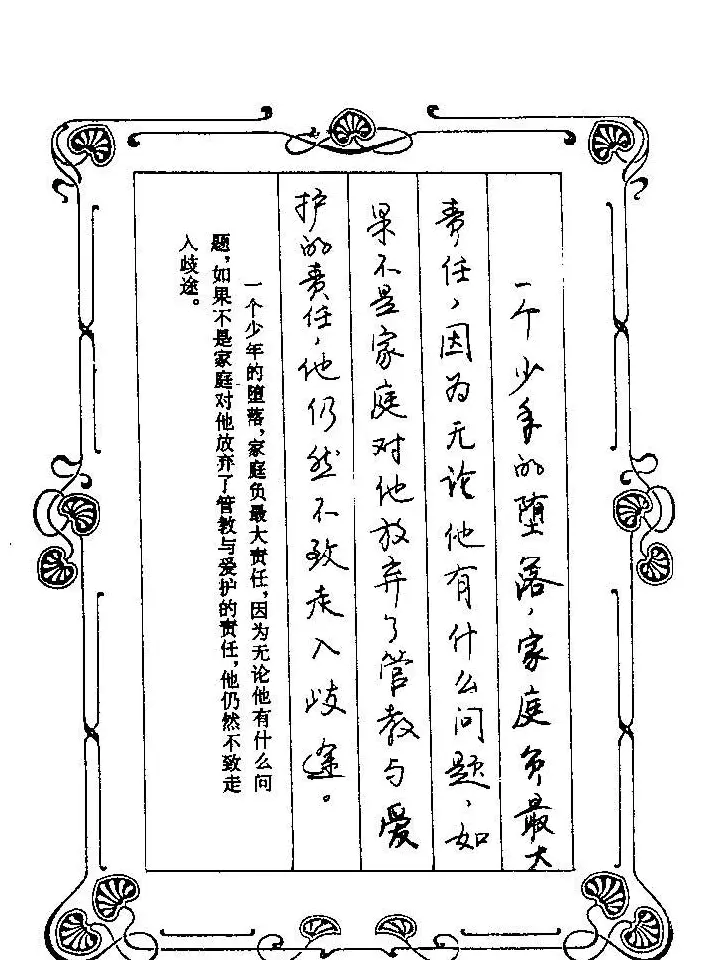 一个少年的堕落，家庭负最大
责任，因为无论他有什么问题，如
果不是家庭对他放弃了管教与爱
护的责任，他仍然不致走入歧途。
一个少年的堕落，家庭负最大责任，因为无论他有什么问
题，如果不是家庭对他放弃了管教与爱护的责任，他仍然不致走
入歧途。